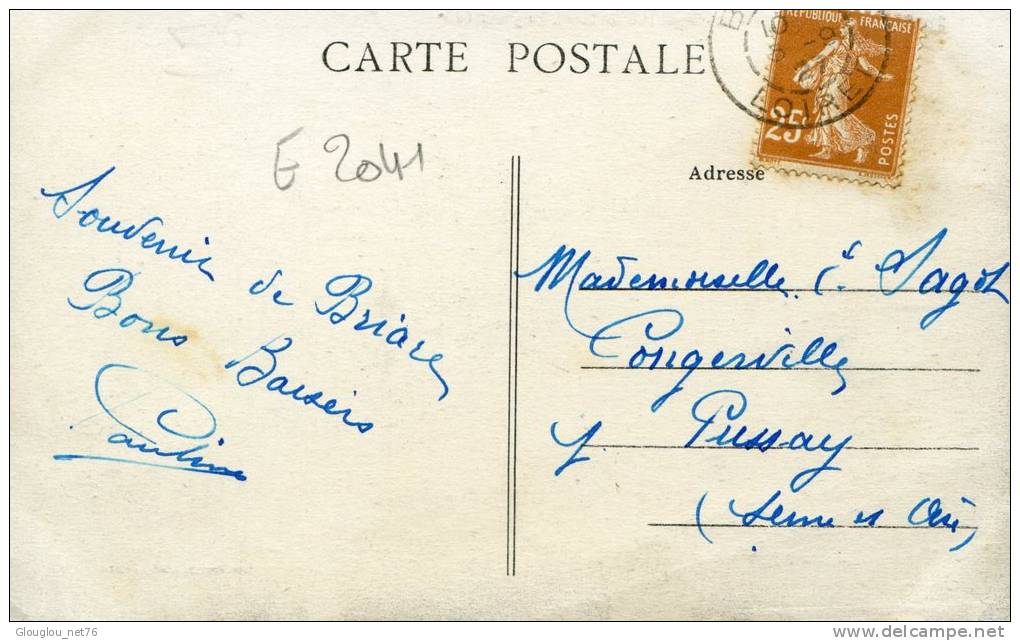 CARTE POSTALE
RÉPUBLIQUE FRANÇAISE
25
POSTES
LOIRET
E 2041
Adresse
Souvenir de Briare
Bons Baisers
Pauline
Mademoiselle C. Sagot
Congerville
Pussay
(Seine et Oise)
Glouglou_net76
www.delcampe.net